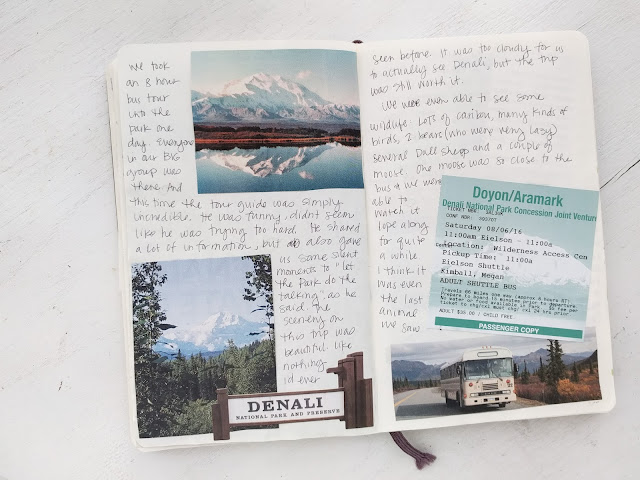 We took
an 8 hour
bus tour
into the
park one
day. Everyone
in our BIG
group was
there. And
this time the tour guide was simply
incredible. He was funny, didnt seem
like he was trying too hard. He shared
a lot of information, but also gave
us some silent
moments to "let
the Park do the
talking", as he
said. The
scenery on
this trip was
beautiful, like
nothing
i'd ever
DENALI
NATIONAL PARK AND PRESERVE
seen before. It was too cloudy for us
to actually see Denali, but the trip
was still worth it.
We were even able to see some
wildlife: Lots of caribou, many kinds of
birds, 2 bears (who were very lazy)
several Dall sheep and a couple of
moose. One moose was so close to the
bus & we were
able to
watch it
lope along
for quite
a while
I think it
was even
the last
animal
we saw
Doyon/Aramark
Denali National Park Concession Joint Ventur
TICKET NBR:
CONF NBR:
Saturday 08/06/16
11:00am Eielson - 11:00a
Location: Wilderness Access Cen
Pickup Time: 11:00a
Eielson Shuttle
Kimball, Megan
ADULT SHUTTLE BUS
Travels 66 miles one way (approx 8 hours RT)
Prepare to board 15 minutes prior to departure.
ADULT $39.00 / CHILD FREE
PASSENGER COPY